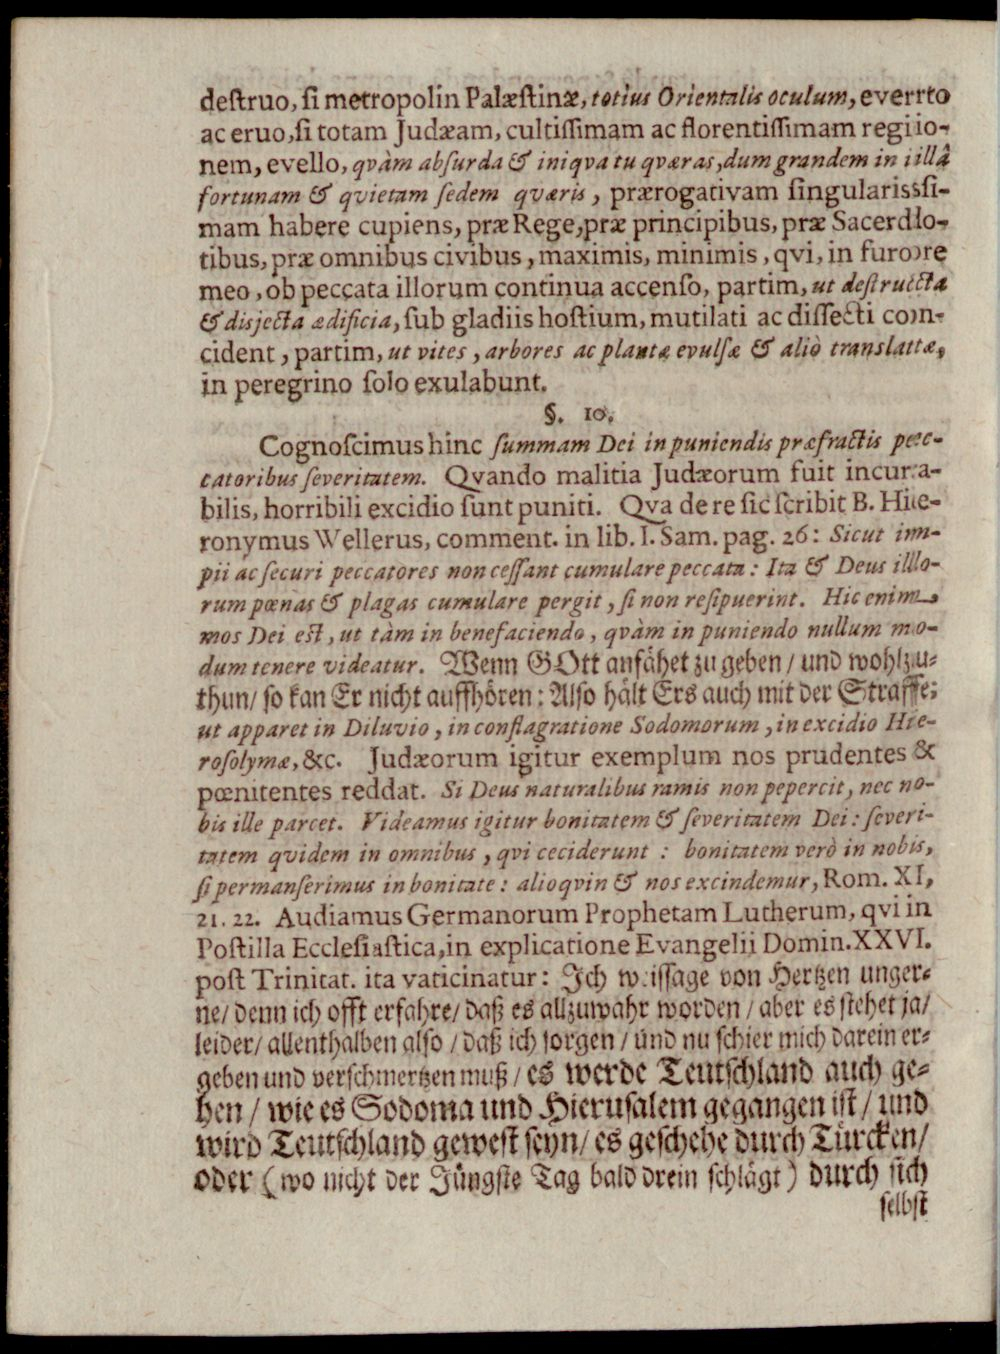 deſtruo, ſi metropolin Palæſtinæ, totius Orientalis oculum, everrto
ac eruo, ſi totam Judæam, cultiſſimam ac florentiſſimam regiio-
nem, evello, qvàm abſurda & iniqva tu qværas, dum grandem in iillâ
fortunam & qvietam ſedem qværis, prærogativam ſingularissſi-
mam habere cupiens, præ Rege, præ principibus, præ Sacerdlo-
tibus, præ omnibus civibus, maximis, minimis, qvi, in furoore
meo, ob peccata illorum continua accenſo, partim, ut deſtruccta
& disjecta ædificia, ſub gladiis hoſtium, mutilati ac diſſecti coin-
cident, partim, ut vites, arbores ac plantæ evulſæ & aliò translattæ,
in peregrino ſolo exulabunt.
§. 10.
Cognoſcimus hinc ſummam Dei in puniendis præfractis pecc-
catoribus ſeveritatem. Qvando malitia Judæorum fuit incura-
bilis, horribili excidio ſunt puniti. Qva de re ſic ſcribit B. Hiie-
ronymus Wellerus, comment. in lib. I. Sam. pag. 26: Sicut inn-
pii ac ſecuri peccatores non ceſſant cumulare peccata: Ita & Deus illlo-
rum pœnas & plagas cumulare pergit, ſi non reſipuerint. Hic enim
mos Dei eſt, ut tàm in benefaciendo, qvàm in puniendo nullum mo-
dum tenere videatur. Wenn GOtt anfähet zu geben / und wohlzu-
thun / ſo kan Er nicht auffhören: Alſo hält Ers auch mit der Straffe;
ut apparet in Diluvio, in conflagratione Sodomorum, in excidio Hie-
roſolymæ, &c. Judæorum igitur exemplum nos prudentes &
pœnitentes reddat. Si Deus naturalibus ramis non pepercit, nec no-
bis ille parcet. Videamus igitur bonitatem & ſeveritatem Dei: ſeveri-
tatem qvidem in omnibus, qvi ceciderunt: bonitatem verò in nobis,
ſi permanſerimus in bonitate: alioqvin & nos excindemur, Rom. XI,
21. 22. Audiamus Germanorum Prophetam Lutherum, qvi in
Poſtilla Eccleſiaſtica, in explicatione Evangelii Domin. XXVI.
poſt Trinitat. ita vaticinatur: Ich weiſſage von Hertzen unger-
ne / denn ich offt erfahre / daß es allzuwahr worden / aber es ſtehet ja /
leider / allenthalben alſo / daß ich ſorgen / und nu ſchier mich darein er-
geben und verſchmertzen muß / es werde Teutſchland auch ge-
hen / wie es Sodoma und Hieruſalem gegangen iſt / und
wird Teutſchland geweſt ſeyn / es geſchehe durch Türcken /
oder (wo nicht der Jüngſte Tag bald drein ſchlägt) durch ſich
ſelbſt